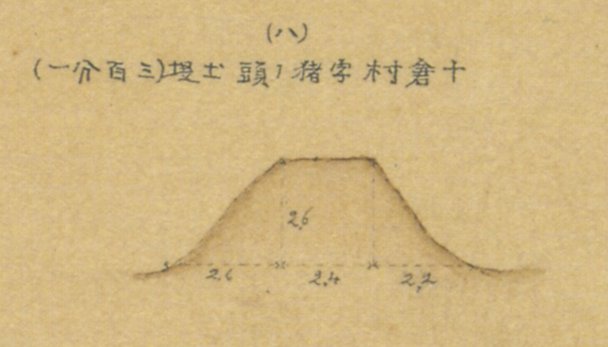 (八)
十倉村字猪ノ頭土堤(三百分一)
2.6
2.6
2.4
2.2